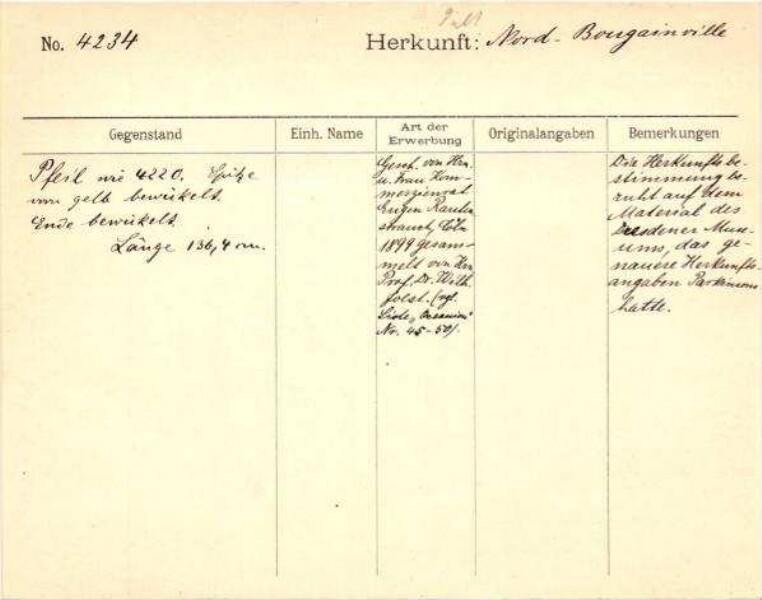 No. 4234
Herkunft: Nord-Bougainville
Gegenstand
Einh. Name
Art der
Erwerbung
Originalangaben
Bemerkungen
Pfeil wie 4220. Spitze
gelb bewickelt.
Ende bewickelt.
Länge 136,4 cm.
Gesch. von Hrn.
u. Frau Kom-
merzienrat
Eugen Rauten-
strauch, Cöln
1899 gesam-
melt von Hrn
Prof. Dr. Wilh.
Joest. (vgl.
Liste „Oceanien"
Nr. 45-50).
Die Herkunftsbe-
stimmung be-
ruht auf dem
Material des
Dresdener Muse-
ums, das ge-
nauere Herkunfts-
angaben Parkinsons
hatte.